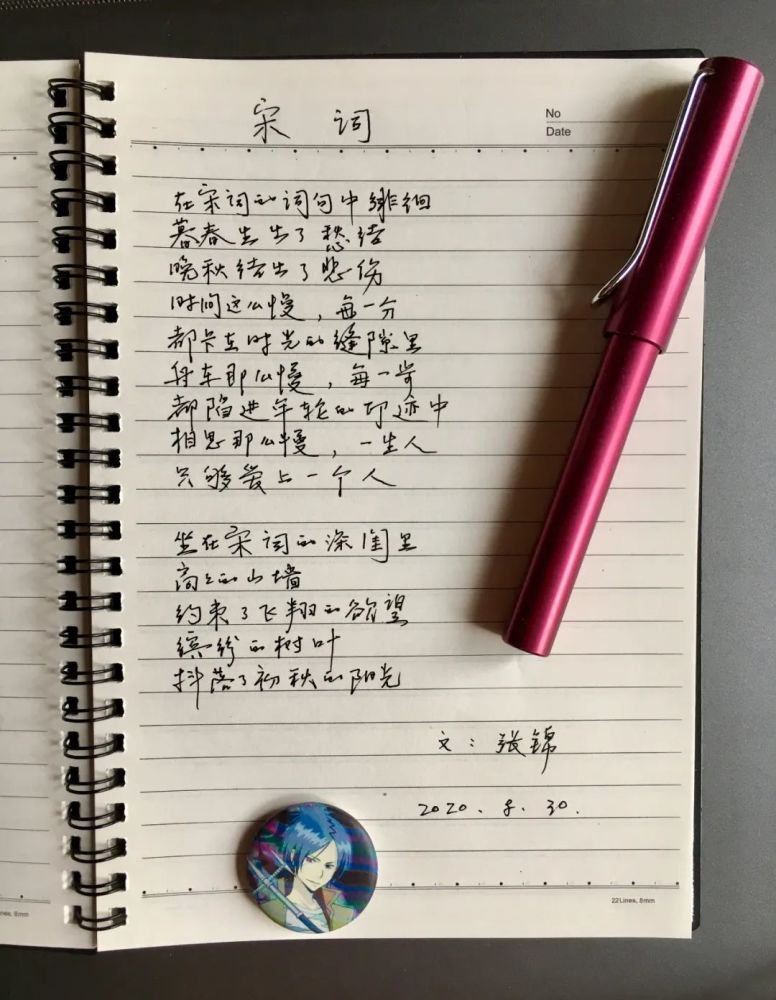 宋 词
No
Date
在宋词的词句中徘徊
暮春生出了愁结
晚秋结出了悲伤
时间这么慢，每一分
都卡在时光的缝隙里
舟车那么慢，每一步
都陷进年轮的印迹中
相思那么慢，一生人
只够爱上一个人
坐在宋词的深闺里
高高的山墙
约束了飞翔的欲望
缤纷的树叶
抖落了初秋的阳光
文：张锦
2020.8.30.
22Lines, 8mm
nes, 8mm